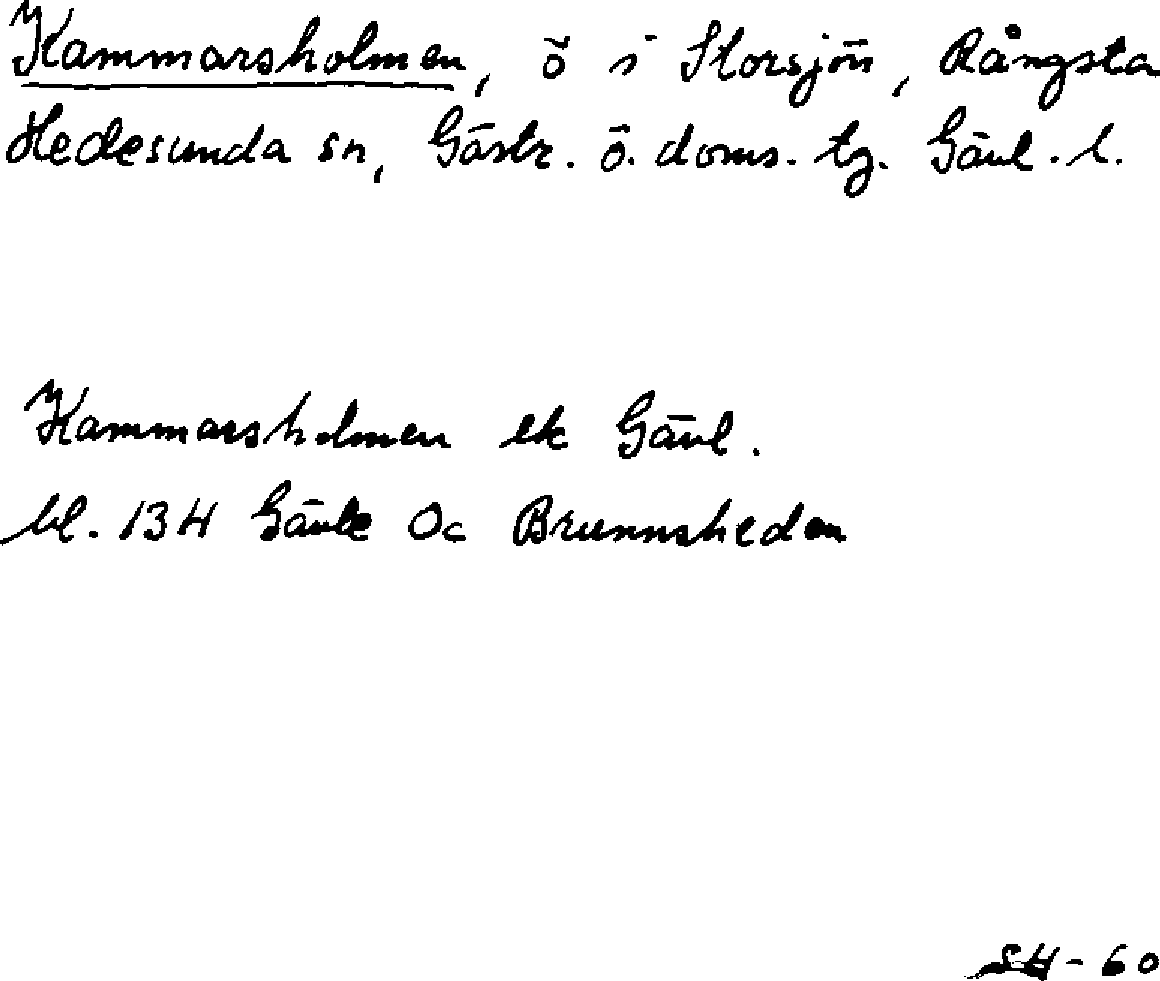 Kammarsholmen, ö i Storsjön, Rångsta
Hedesunda sn, Gästr. ö. doms. tg. Gävl. l.
Kammarsholmen ek Gävl.
bl. 134 Gävle Oc Brunnsheden
SH-60